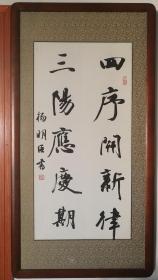 四序開新律
三陽應慶期
楊明臣書